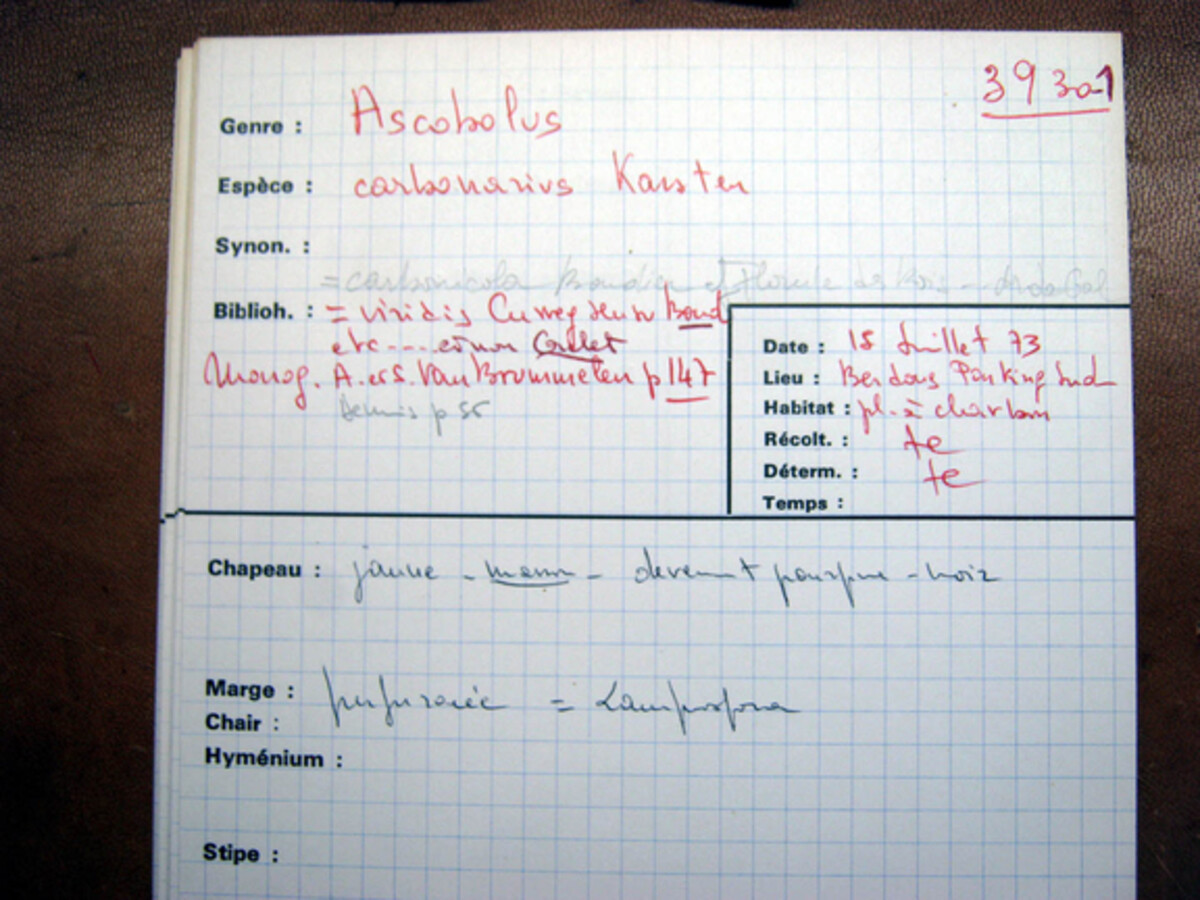 39 30-1
Genre : Ascobolus
Espèce : carbonarius Karsten
Synon. :
= carbonicola Boudier et
Biblioh. : = viridis Currey sensu Boud
etc ---- et non
Monog. A. et S. Van Brummelen p 147
Dennis p 55
Date : 15 Juillet 73
Lieu : Berdons Parking Sud
Habitat : pl. à charbon
Récolt. : te
Déterm. : te
Temps :
Chapeau : jaune - - devenant pourpre - noir
Marge : furfuracée = Lamprospora
Chair :
Hyménium :
Stipe :